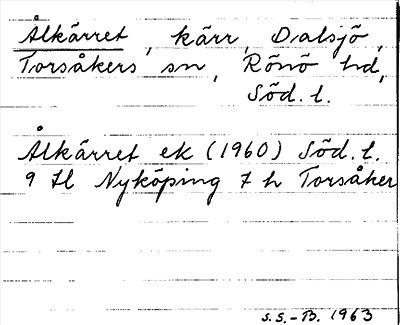 Ålkärret, kärr, Dalsjö,
Torsåkers sn, Rönö hd,
Söd. l.
Ålkärret ek (1960) Söd. l.
9 H Nyköping 7 h Torsåker
S.S.-B. 1963